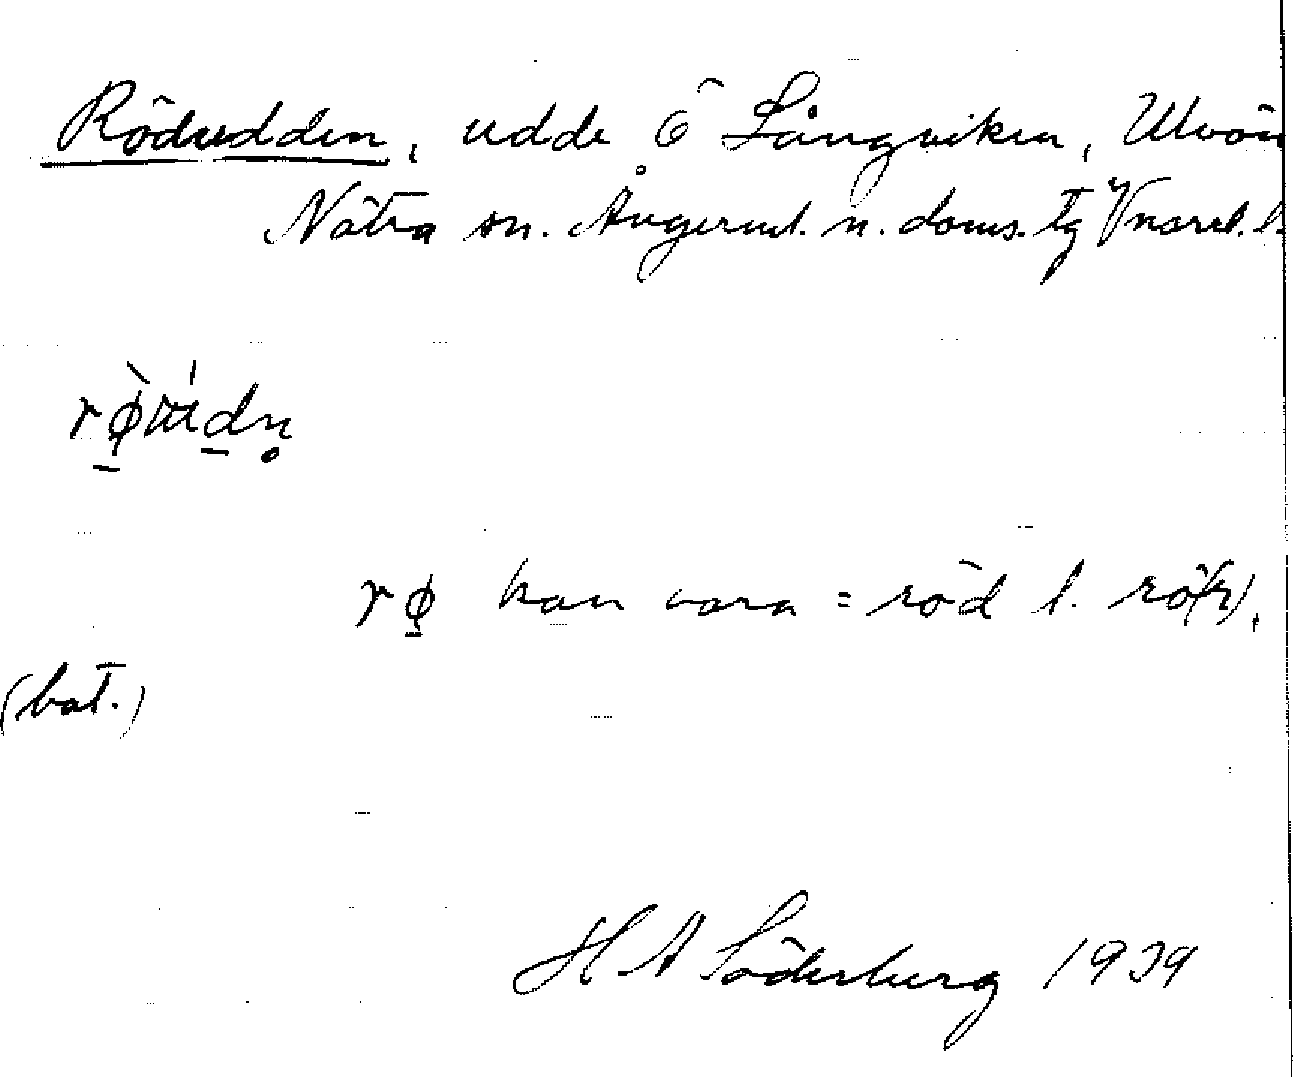 Rödudden, udde Ö Långviken, Ulvön
Nätra sn. Ångerml. n. doms. tg Vnorrl. l.
kan vara = röd l. rö(r),
(bot.)
H A Söderberg 1939